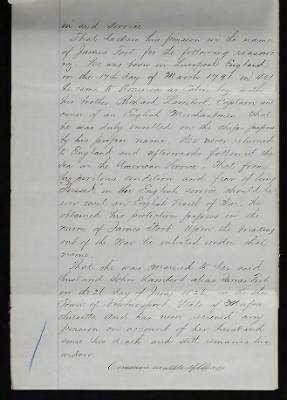 on and service
That he drew his pension in the name
of James Foot for the following reasons
viz. He was born in Liverpool England
on the 17th day of March 1791. in 181
he came to America as Cabin boy with
his brother Richard Lambert, Captain and
owner of an English Merchantman. That
he was duly enrolled on the ships papers
by his proper name. He never returned
to England and afterwards followed the
sea in the American Service. That from
his perilous condition and fear of being
"Pressed" in the English service should he
ever meet an English Vessel of War, he
obtained his protection papers in the
name of James Foot. Upon the breaking
out of the War he enlisted under that
name.
That she was married to her said
husband John Lambert alias James Foot
on the 26 day of June, in the
Town of Newburyport, State of Massa
chusetts and has never received any
pension on account of her husband
since his death and still remains his
widow
Commonwealth of Mass